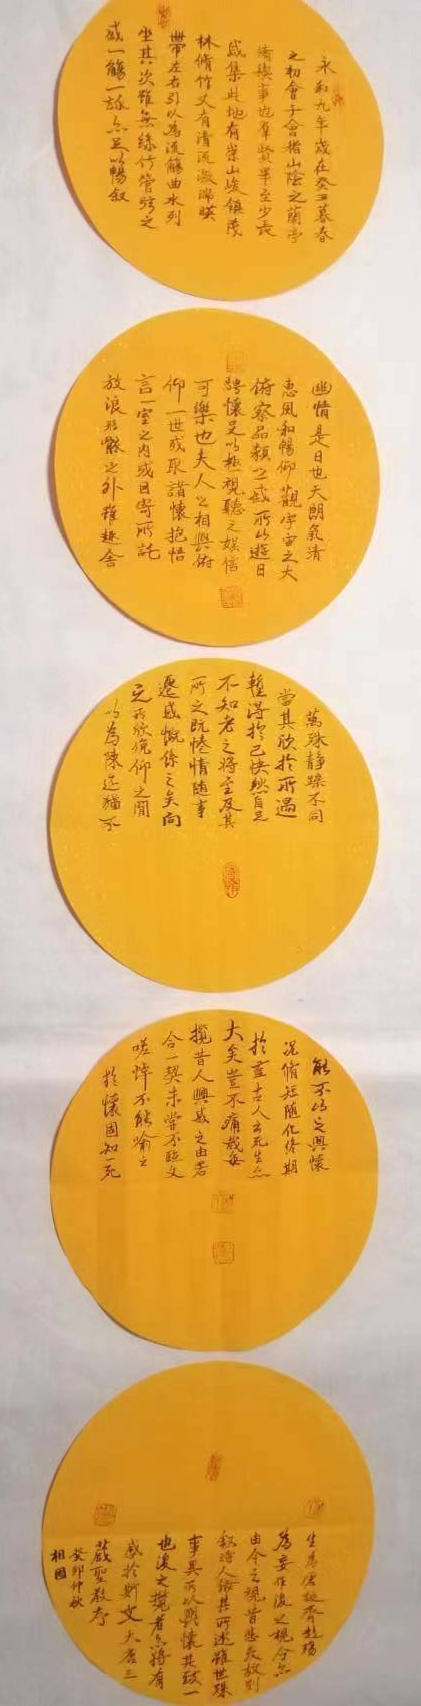 永和九年歲在癸丑暮春
之初會于會稽山陰之蘭亭
脩禊事也羣賢畢至少長
咸集此地有崇山峻領茂
林脩竹又有清流激湍暎
帶左右引以為流觴曲水列
坐其次雖無絲竹管弦之
盛一觴一詠亦足以暢叙
幽情是日也天朗氣清
惠風和暢仰觀宇宙之大
俯察品類之盛所以遊目
騁懷足以極視聽之娛信
可樂也夫人之相與俯
仰一世或取諸懷抱悟
言一室之內或因寄所託
放浪形骸之外雖趣舍
萬殊静躁不同
當其欣於所遇
暫得於己快然自足
不知老之將至及其
所之既惓情隨事
遷感慨係之矣向
之所欣俛仰之間
以為陳迹猶不
能不以之興懷
況脩短隨化終期
於盡古人云死生亦
大矣豈不痛哉每
攬昔人興感之由若
合一契未嘗不臨文
嗟悼不能喻之
於懷固知一死
生為虛誕齊彭殤
為妄作後之視今亦
由今之視昔悲夫故列
叙時人録其所述雖世殊
事異所以興懷其致一
也後之攬者亦將有
感於斯文 大唐三
藏聖教序
癸卯仲秋
相國